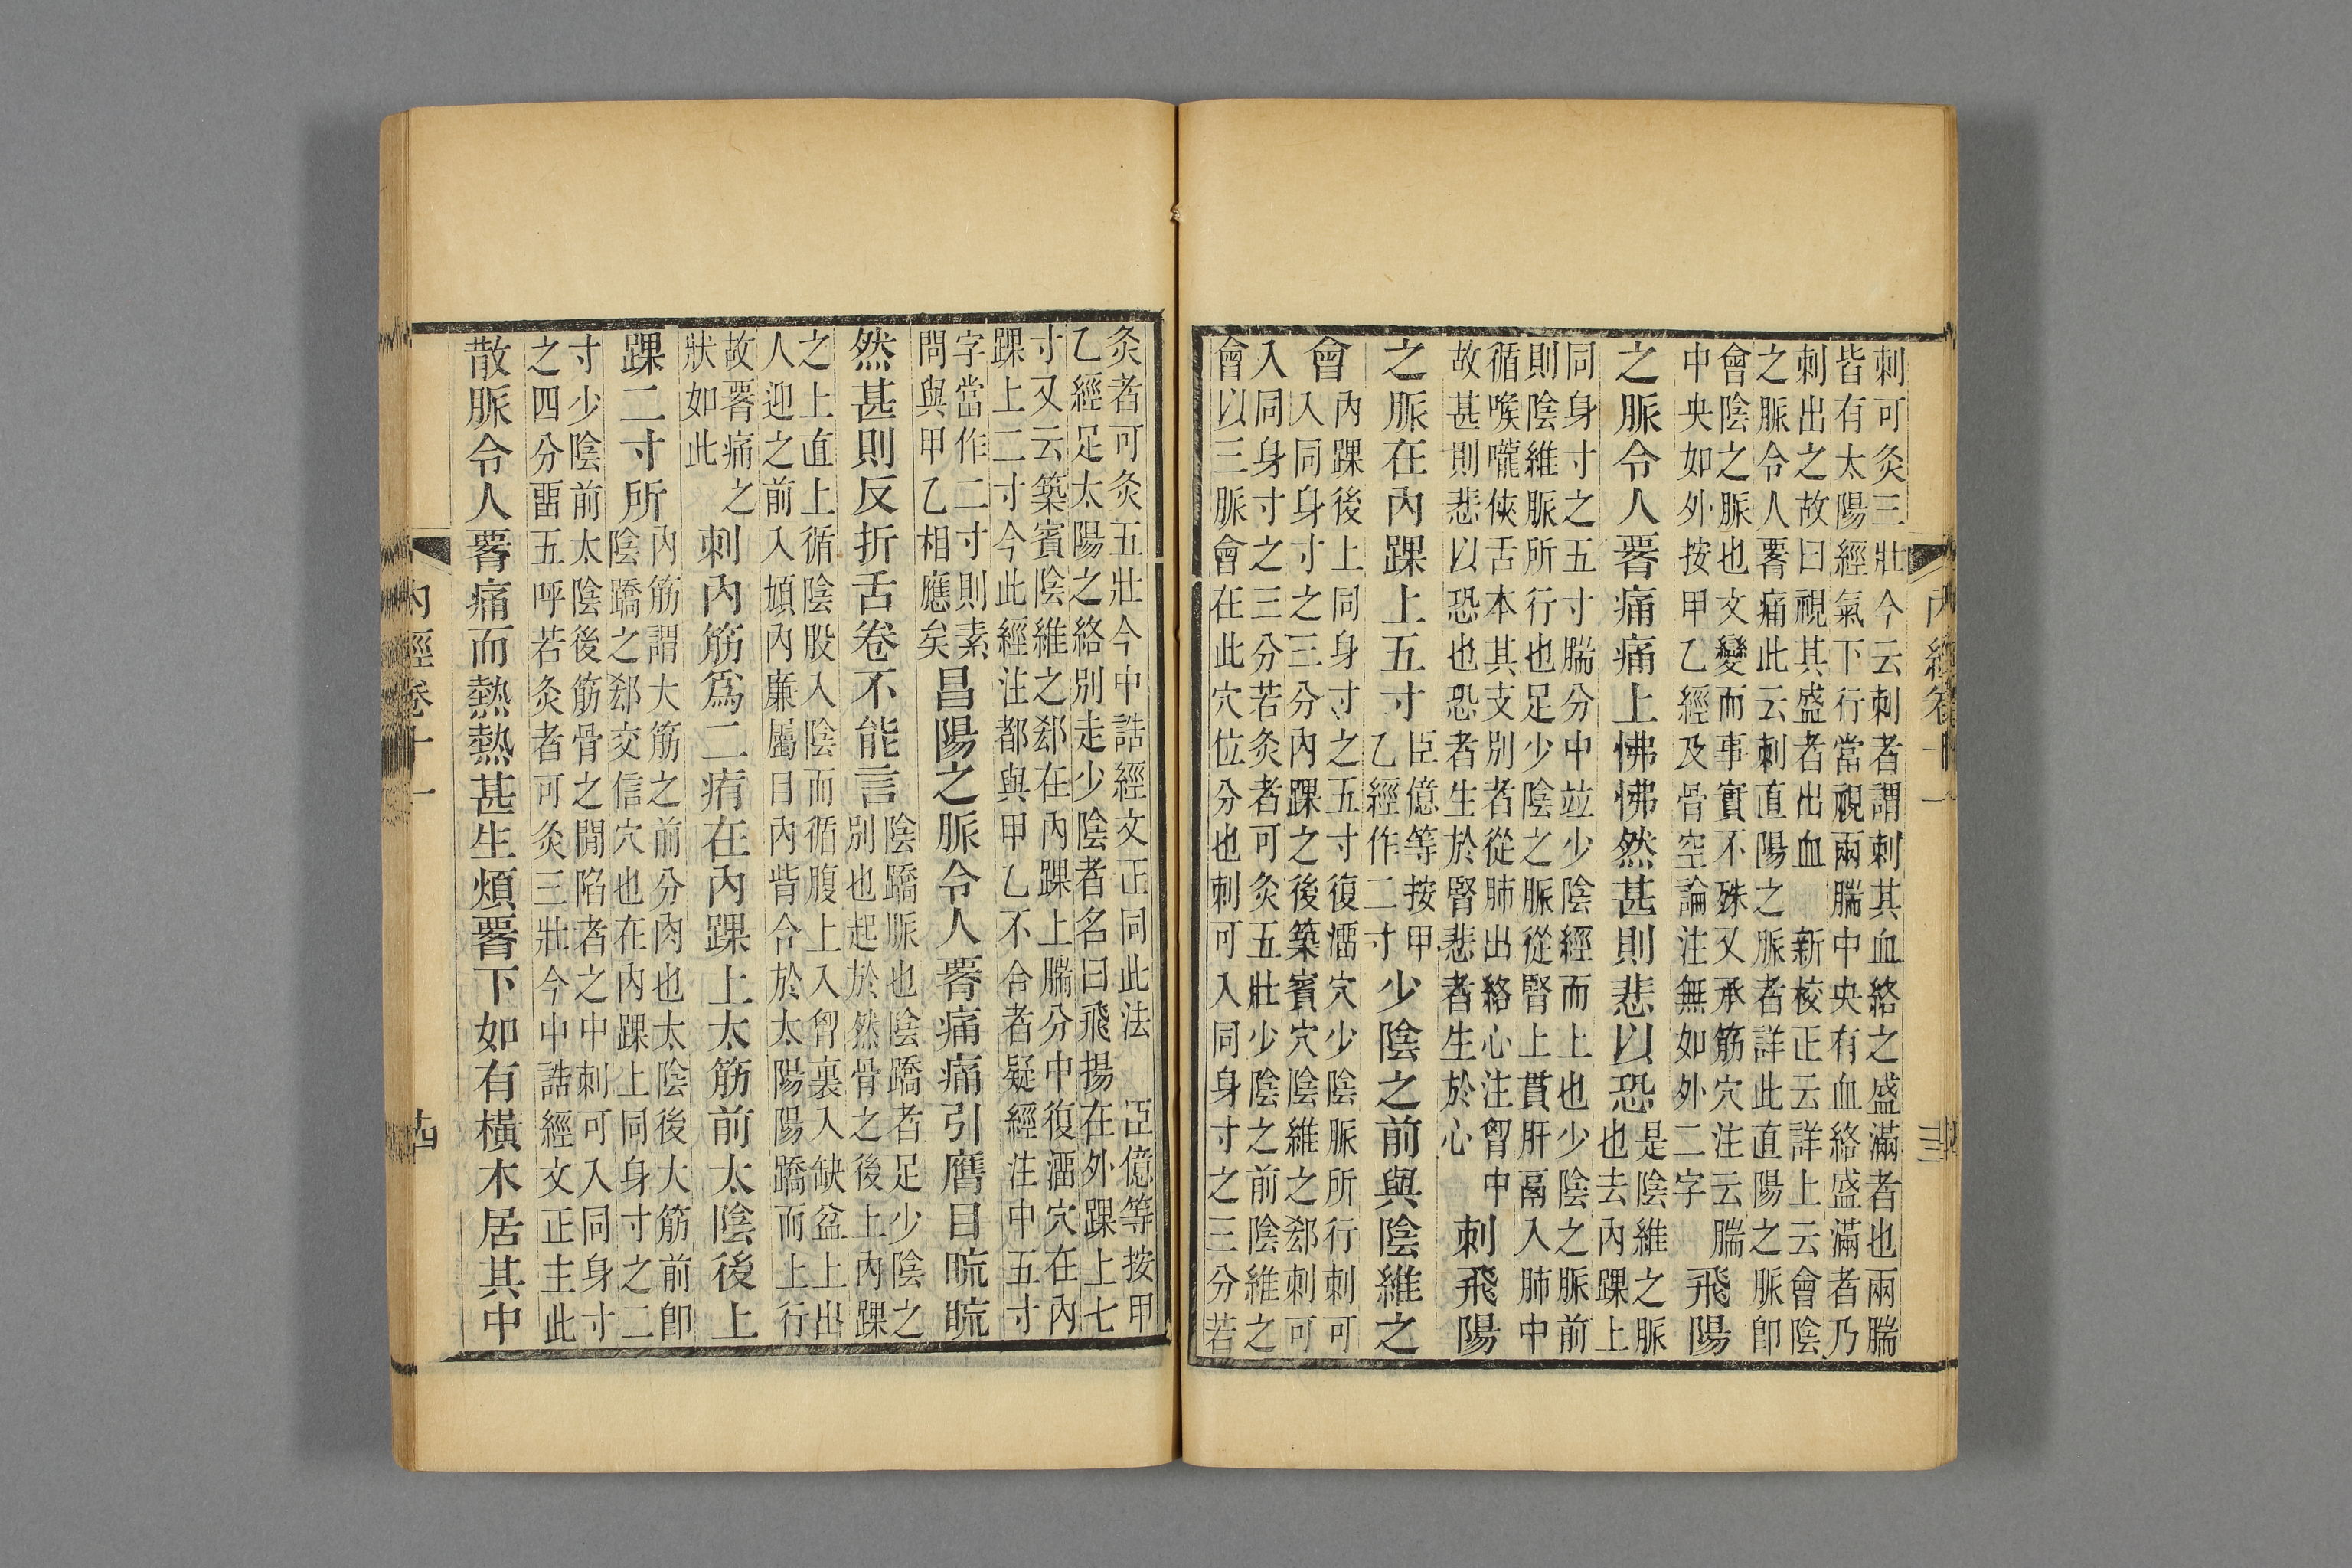 內經卷十一
刺可灸三壯今云刺者謂刺其血絡之盛滿者也兩腨
皆有太陽經氣下行當視兩腨中央有血絡盛滿者乃
刺出之故曰視其盛者出血　新校正云詳上云會陰
之脈令人𦝫痛此云刺直陽之脈者詳此直陽之脈卽
會陰之脈也文變而事實不殊又承筋穴注云腨
中央如外按甲乙經及骨空論注無如外二字
飛陽
之脈令人𦝫痛痛上怫怫然甚則悲以恐
是陰維之脈
也去內踝上
同身寸之五寸腨分中並少陰經而上也少陰之脈前
則陰維脈所行也足少陰之脈從腎上貫肝鬲入肺中
循喉嚨俠舌本其支別者從肺出絡心注胷中
故甚則悲以恐也恐者生於腎悲者生於心
刺飛陽
之脈在內踝上五寸
臣億等按甲
乙經作二寸
少陰之前與陰維之
會
內踝後上同身寸之五寸復溜穴少陰脈所行刺可
入同身寸之三分內踝之後築賓穴陰維之郄刺可
入同身寸之三分若灸者可灸五壯少陰之前陰維之
會以三脈會在此穴位分也刺可入同身寸之三分若
灸者可灸五壯今中誥經文正同此法　臣億等按甲
乙經足太陽之絡別走少陰者名曰飛揚在外踝上七
寸又云築賓陰維之郄在內踝上腨分中復溜穴在內
踝上二寸今此經注都與甲乙不合者疑經注中五寸
字當作二寸則素
問與甲乙相應矣
昌陽之脈令人𦝫痛痛引膺目䀮䀮
然甚則反折舌卷不能言
陰蹻脈也陰蹻者足少陰之
別也起於然骨之後上內踝
之上直上循陰股入陰而循腹上入胷裏入缺盆上出
人迎之前入頄內廉屬目內眥合於太陽陽蹻而上行
故𦝫痛之
狀如此
刺內筋爲二痏在內踝上太筋前太陰後上
踝二寸所
內筋謂大筋之前分肉也太陰後大筋前卽
陰蹻之郄交信穴也在內踝上同身寸之二
寸少陰前太陰後筋骨之閒陷者之中刺可入同身寸
之四分畱五呼若灸者可灸三壯今中誥經文正主此
散脈令人𦝫痛而熱熱甚生煩𦝫下如有橫木居其中
內經卷十一
十四